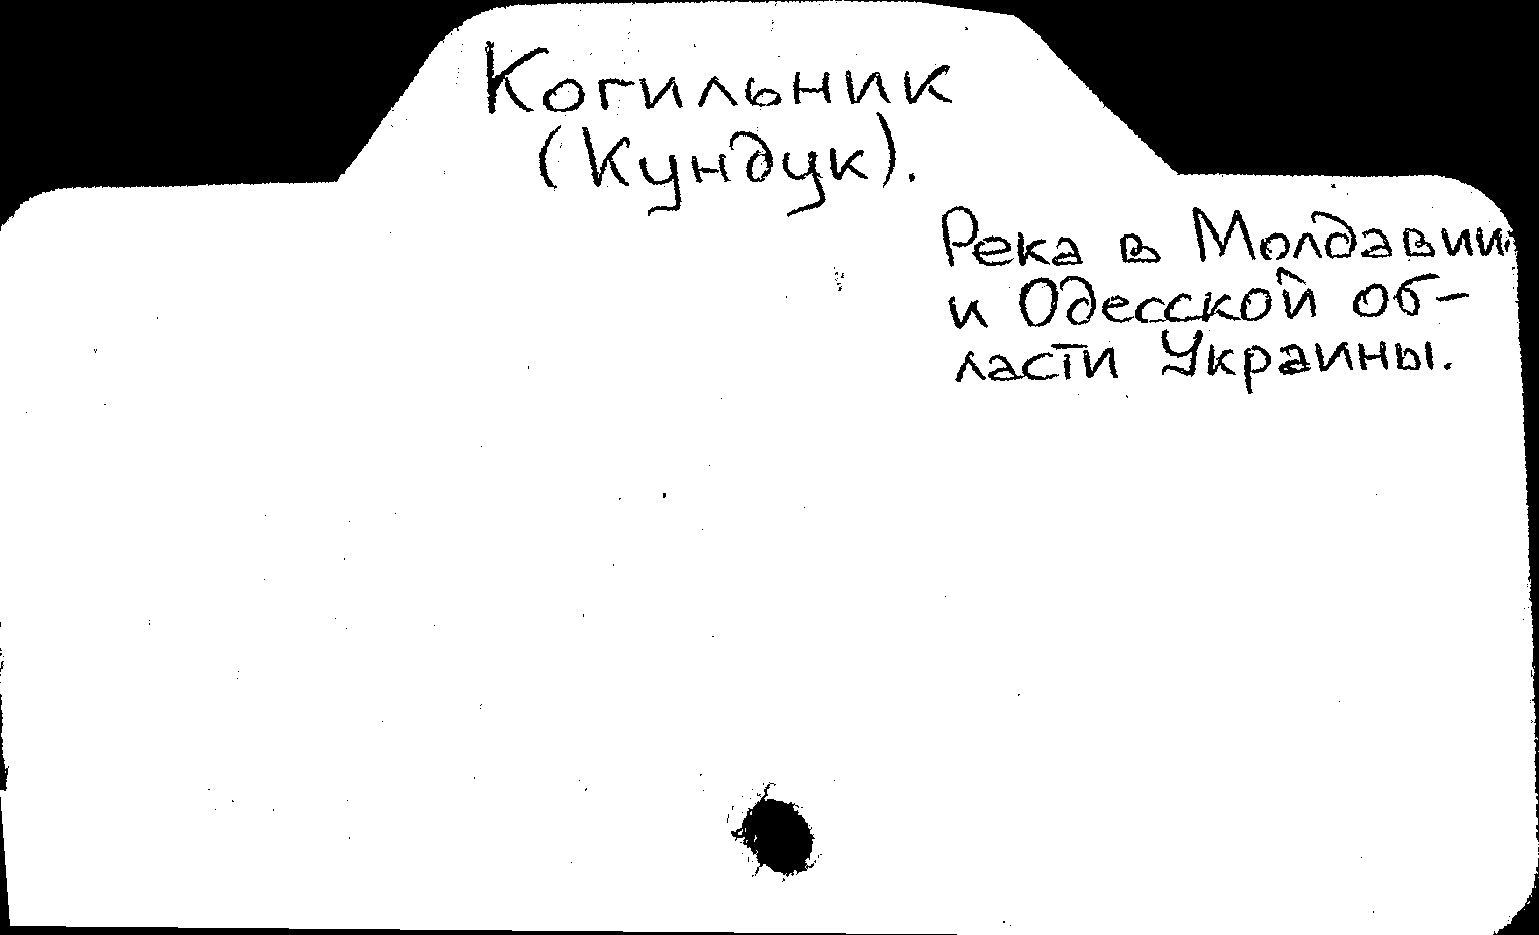 Когильник
(Кундук).
Река в Молдавии
и Одесской об-
ласти Украины.